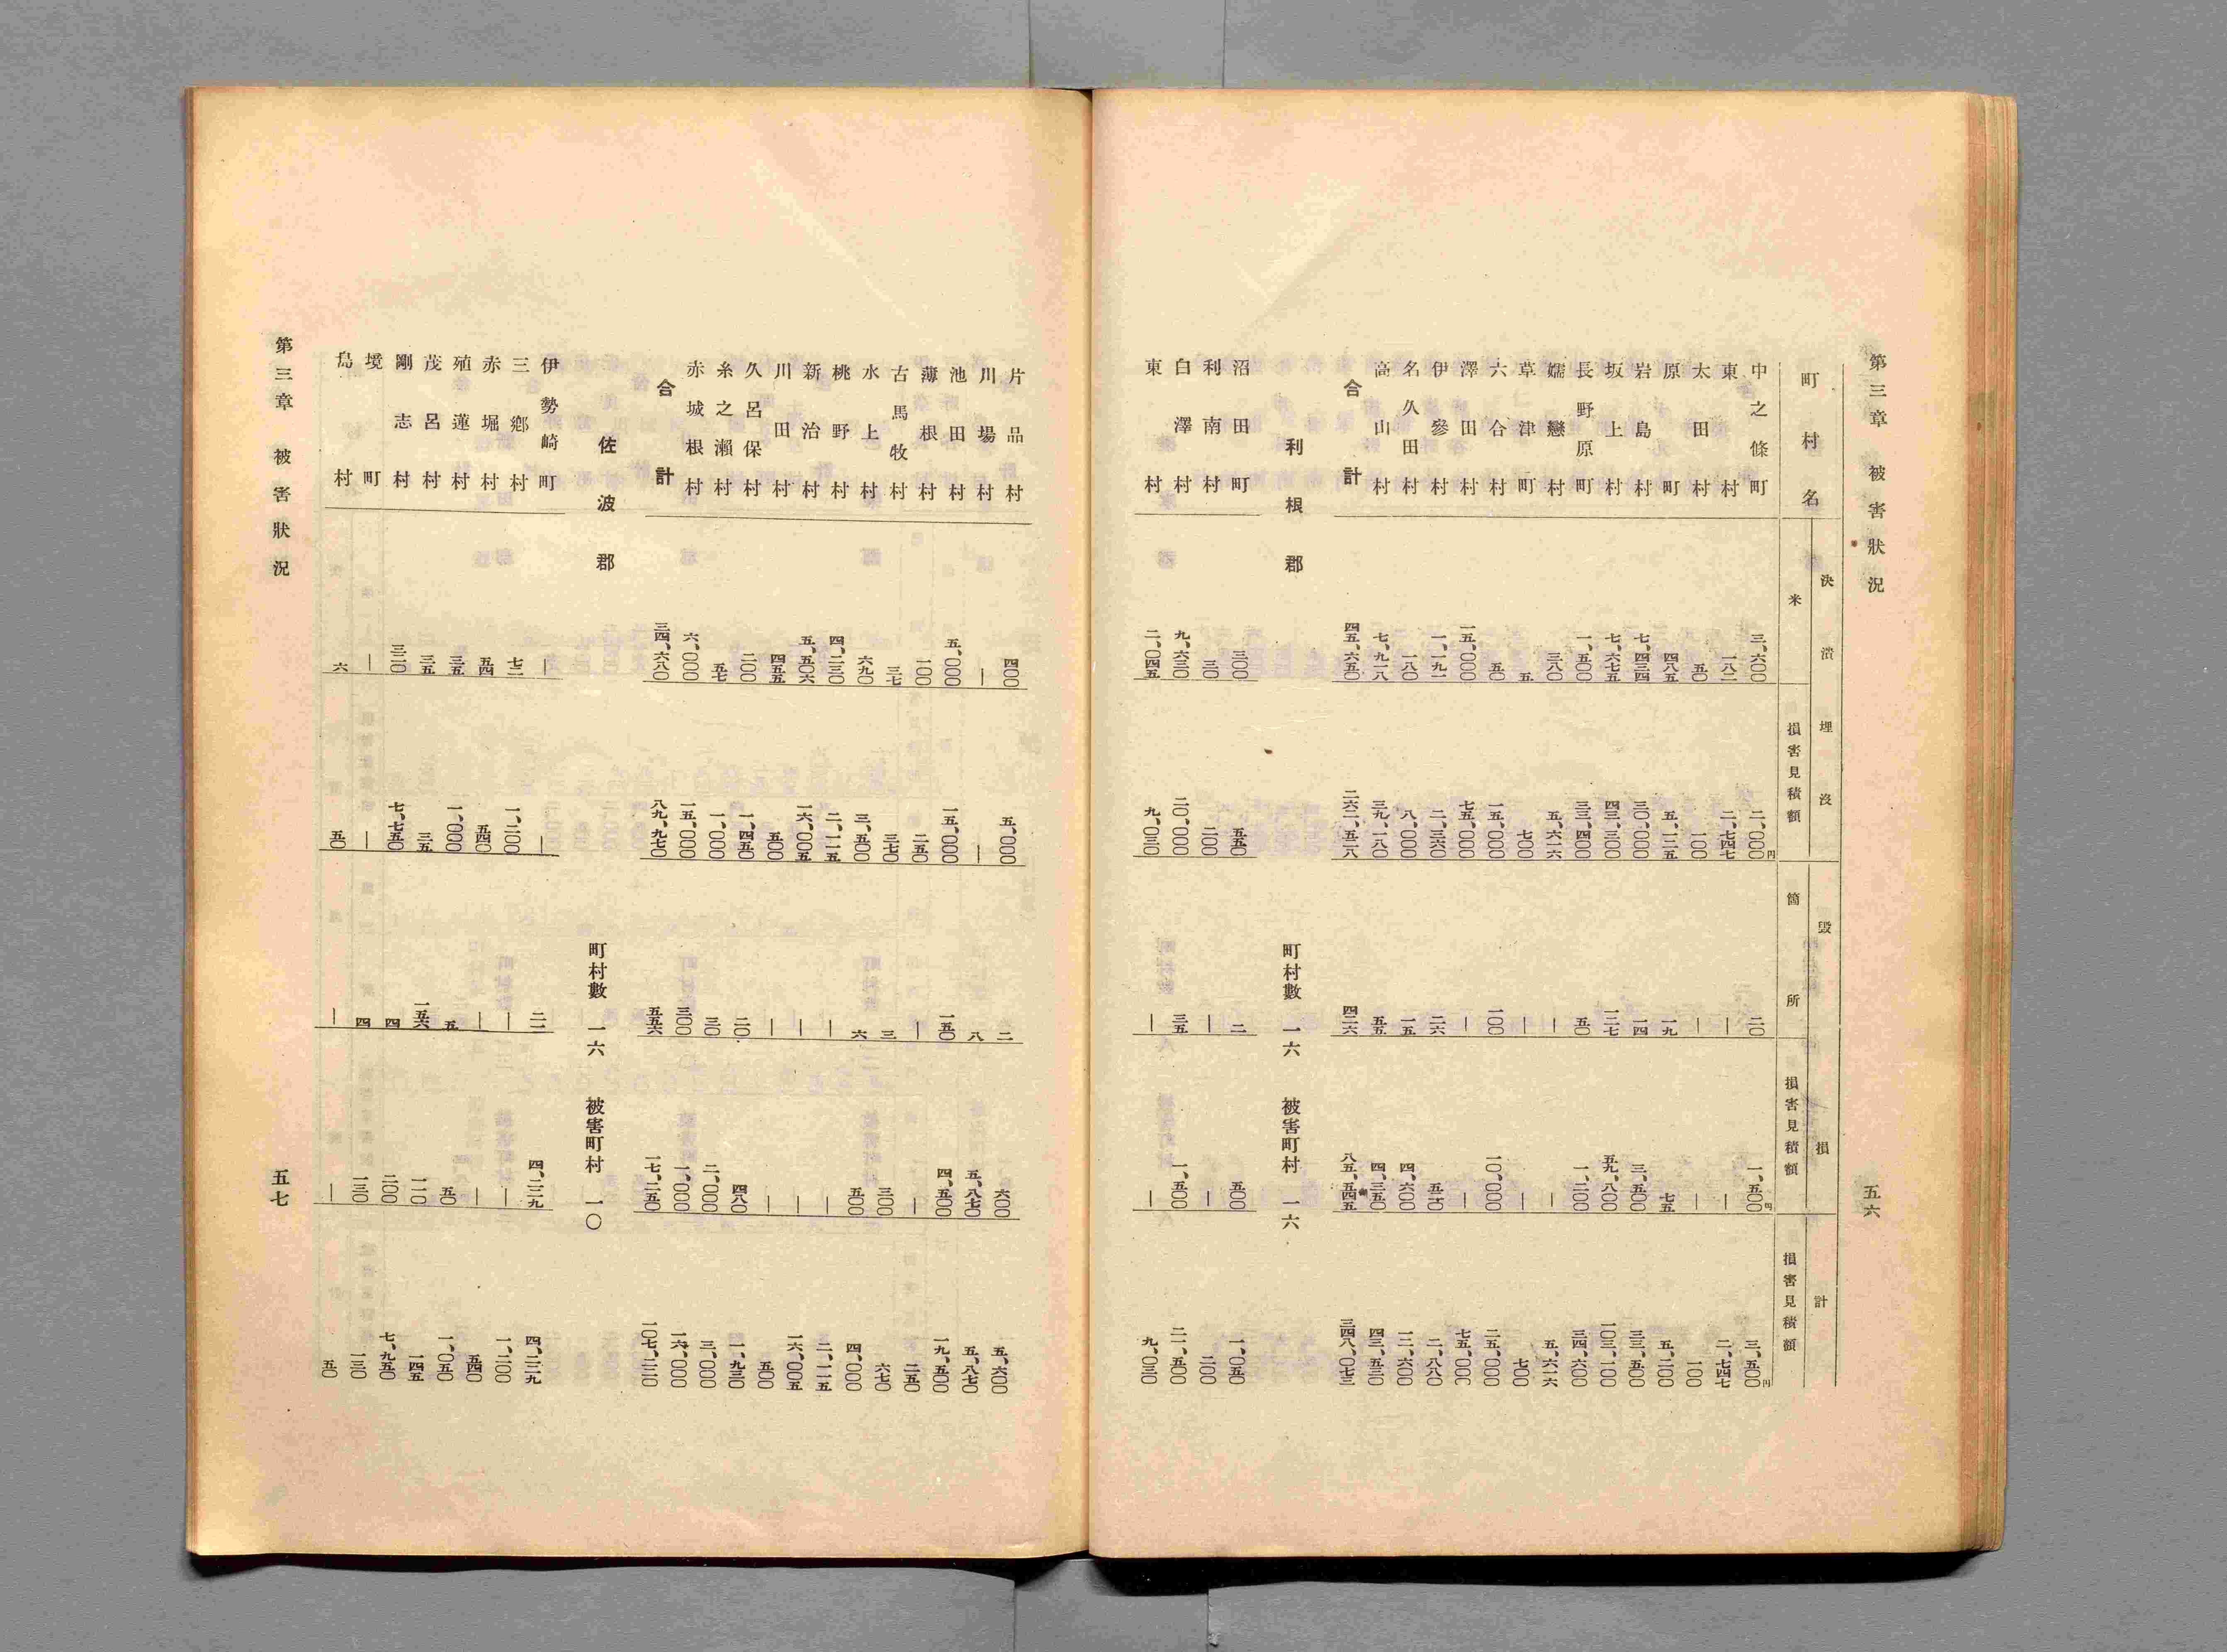 第三章 被害狀況 五六
町村名 決潰埋沒 毀損 計
米 損害見積額 箇所 損害見積額 損害見積額
中之條町 三、六〇〇 二、〇〇〇円 二〇 一、五〇〇円 三、五〇〇円
東村 一八二 二、七四七 — — 二、七四七
太田村 五〇 一〇〇 — — 一〇〇
原町 四八五 五、一二五 一九 七五 五、二〇〇
岩島村 七、四三四 三〇、〇〇〇 一四 三、五〇〇 三三、五〇〇
坂上村 七、六七五 四三、三〇〇 一二七 五九、八〇〇 一〇三、一〇〇
長野原町 一、五〇〇 三三、四〇〇 五〇 一、二〇〇 三四、六〇〇
嬬戀村 三八〇 五、六一六 — — 五、六一六
草津町 五 七〇〇 — — 七〇〇
六合村 五〇 一五、〇〇〇 一〇〇 一〇、〇〇〇 二五、〇〇〇
澤田村 一五、〇〇〇 七五、〇〇〇 — — 七五、〇〇〇
伊參村 一、一九一 二、三六〇 二六 五二〇 二、八八〇
名久田村 一八〇 八、〇〇〇 一五 四、六〇〇 一二、六〇〇
高山村 七、九一八 三九、一八〇 五五 四、三五〇 四三、五三〇
合計 四五、六五〇 二六二、五二八 四二六 八五、五四五 三四八、〇七三
利根郡 町村數 一六 被害町村 一六
沼田町 三〇〇 五五〇 二 五〇〇 一、〇五〇
利南村 三〇 二〇〇 — — 二〇〇
白澤村 九、六三〇 二〇、〇〇〇 三五 一、五〇〇 二一、五〇〇
東村 二、〇四五 九、〇三〇 — — 九、〇三〇
片品村 四〇〇 五、〇〇〇 二 六〇〇 五、六〇〇
川場村 — — 八 五、八七〇 五、八七〇
池田村 五、〇〇〇 一五、〇〇〇 一五〇 四、五〇〇 一九、五〇〇
薄根村 一〇〇 二五〇 — — 二五〇
古馬牧村 三七 三七〇 三 三〇〇 六七〇
水上村 六九〇 三、五〇〇 六 五〇〇 四、〇〇〇
桃野村 四、二三〇 二、一一五 — — 二、一一五
新治村 五、五〇六 一六、〇〇五 — — 一六、〇〇五
川田村 四五五 五〇〇 — — 五〇〇
久呂保村 二〇〇 一、四五〇 二〇 四八〇 一、九三〇
糸之瀨村 五七 一、〇〇〇 三〇 二、〇〇〇 三、〇〇〇
赤城根村 六、〇〇〇 一五、〇〇〇 三〇〇 一、〇〇〇 一六、〇〇〇
合計 三四、六八〇 八九、九七〇 五五六 一七、二五〇 一〇七、二二〇
佐波郡 町村數 一六 被害町村 一〇
伊勢崎町 — — 二一 四、二二九 四、二二九
三鄕村 七二 一、二〇〇 — — 一、二〇〇
赤堀村 五四 五四〇 — — 五四〇
殖蓮村 三五 一、〇〇〇 五 五〇 一、〇五〇
茂呂村 三五 三五 一五六 一一〇 一四五
剛志村 三二〇 七、七五〇 四 二〇〇 七、九五〇
境町 — — 四 一三〇 一三〇
島村 六 五〇 — — 五〇
第三章 被害狀況 五七